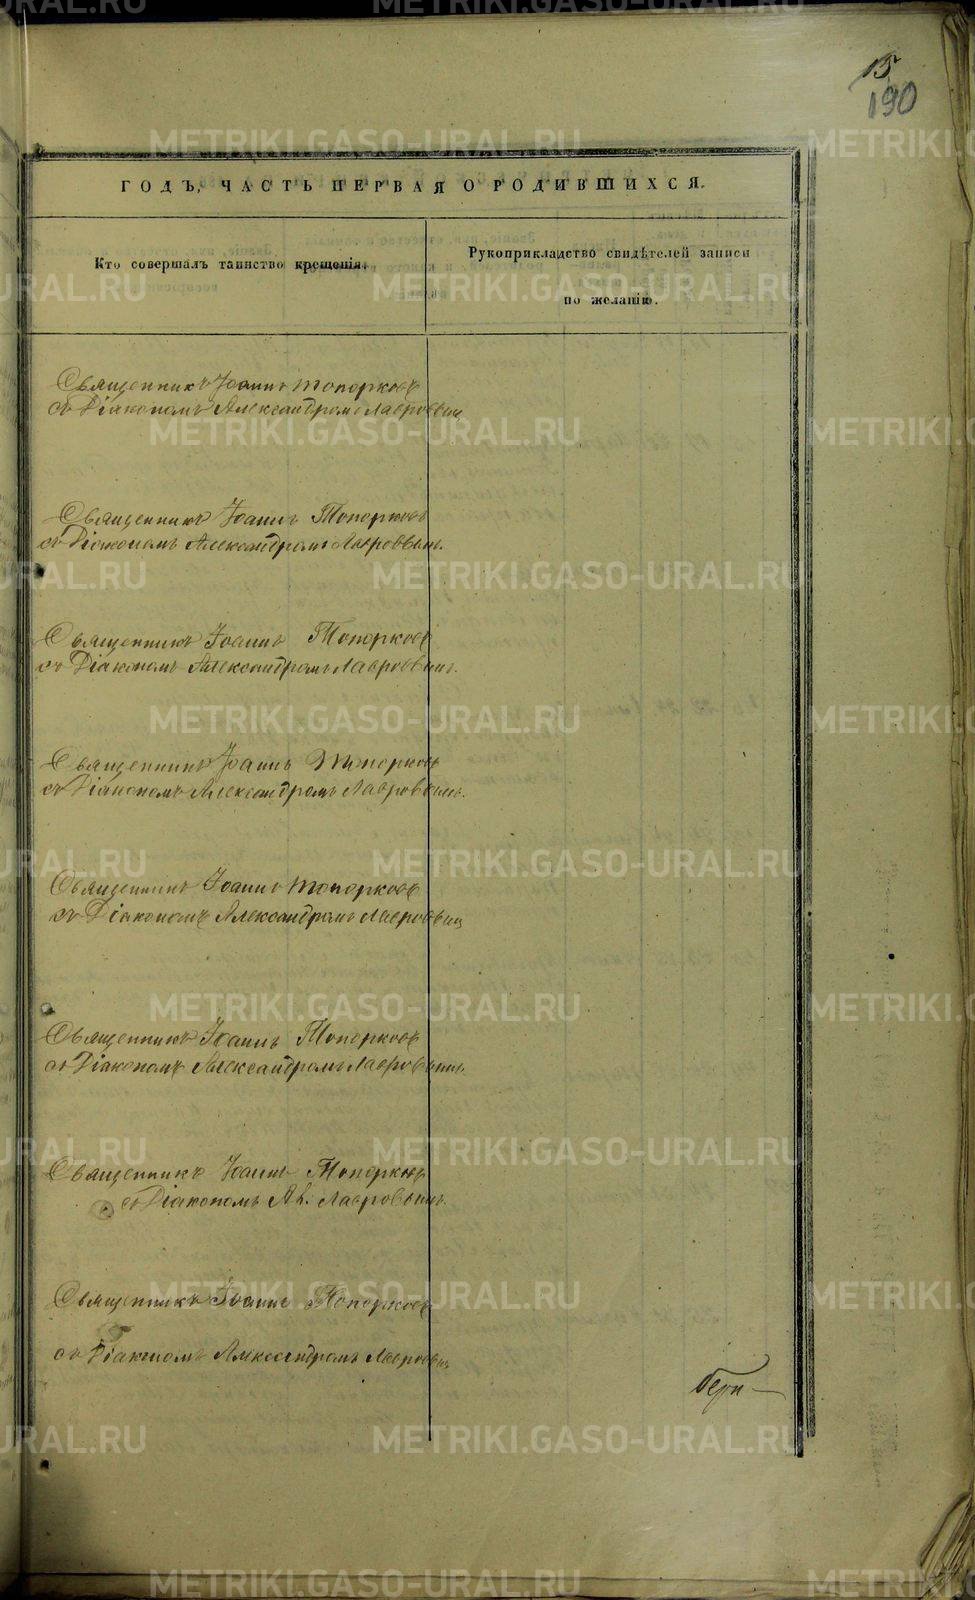 15
190
ГОДЪ, ЧАСТЬ ПЕРВАЯ О РОДИВШИХСЯ.
Кто совершалъ таинство крещенія.
Рукоприкладство свидѣтелей записи
по желанію.
Священникъ Іоаннъ Топорковъ
съ Діакономъ Александромъ Лавровымъ
Священникъ Іоаннъ Топорковъ
съ Діакономъ Александромъ Лавровымъ.
Священникъ Іоаннъ Топорковъ
съ Діакономъ Александромъ Лавровымъ.
Священникъ Іоаннъ Топорковъ
съ Діакономъ Александромъ Лавровымъ.
Священникъ Іоаннъ Топорковъ
съ Діакономъ Александромъ Лавровымъ
Священникъ Іоаннъ Топорковъ
съ Діакономъ Александромъ Лавровымъ
Священникъ Іоаннъ Топорковъ
съ Діакономъ Ал. Лавровымъ.
Священникъ Іоаннъ Топорковъ
съ Діакономъ Александромъ Лавровымъ
METRIKI.GASO-URAL.RU